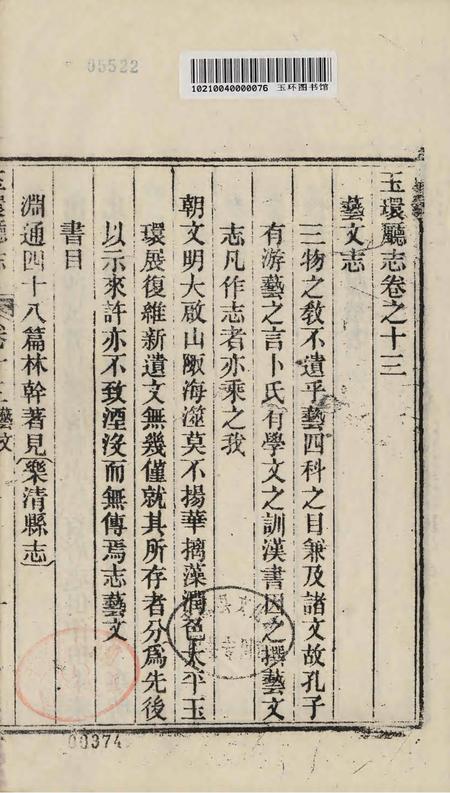 05522
10210040000076 玉环图书馆
玉環廳志卷之十三
藝文志
三物之敎不遺乎藝四科之目兼及諸文故孔子
有游藝之言卜氏有學文之訓漢書因之撰藝文
志凡作志者亦乘之我
朝文明大啟山陬海澨莫不揚華摛藻潤色太平玉
環展復維新遺文無幾僅就其所存者分爲先後
以示來許亦不致湮沒而無傳焉志藝文
書目
淵通四十八篇林幹著見樂清縣志
玉環廳志 卷十三藝文
00374